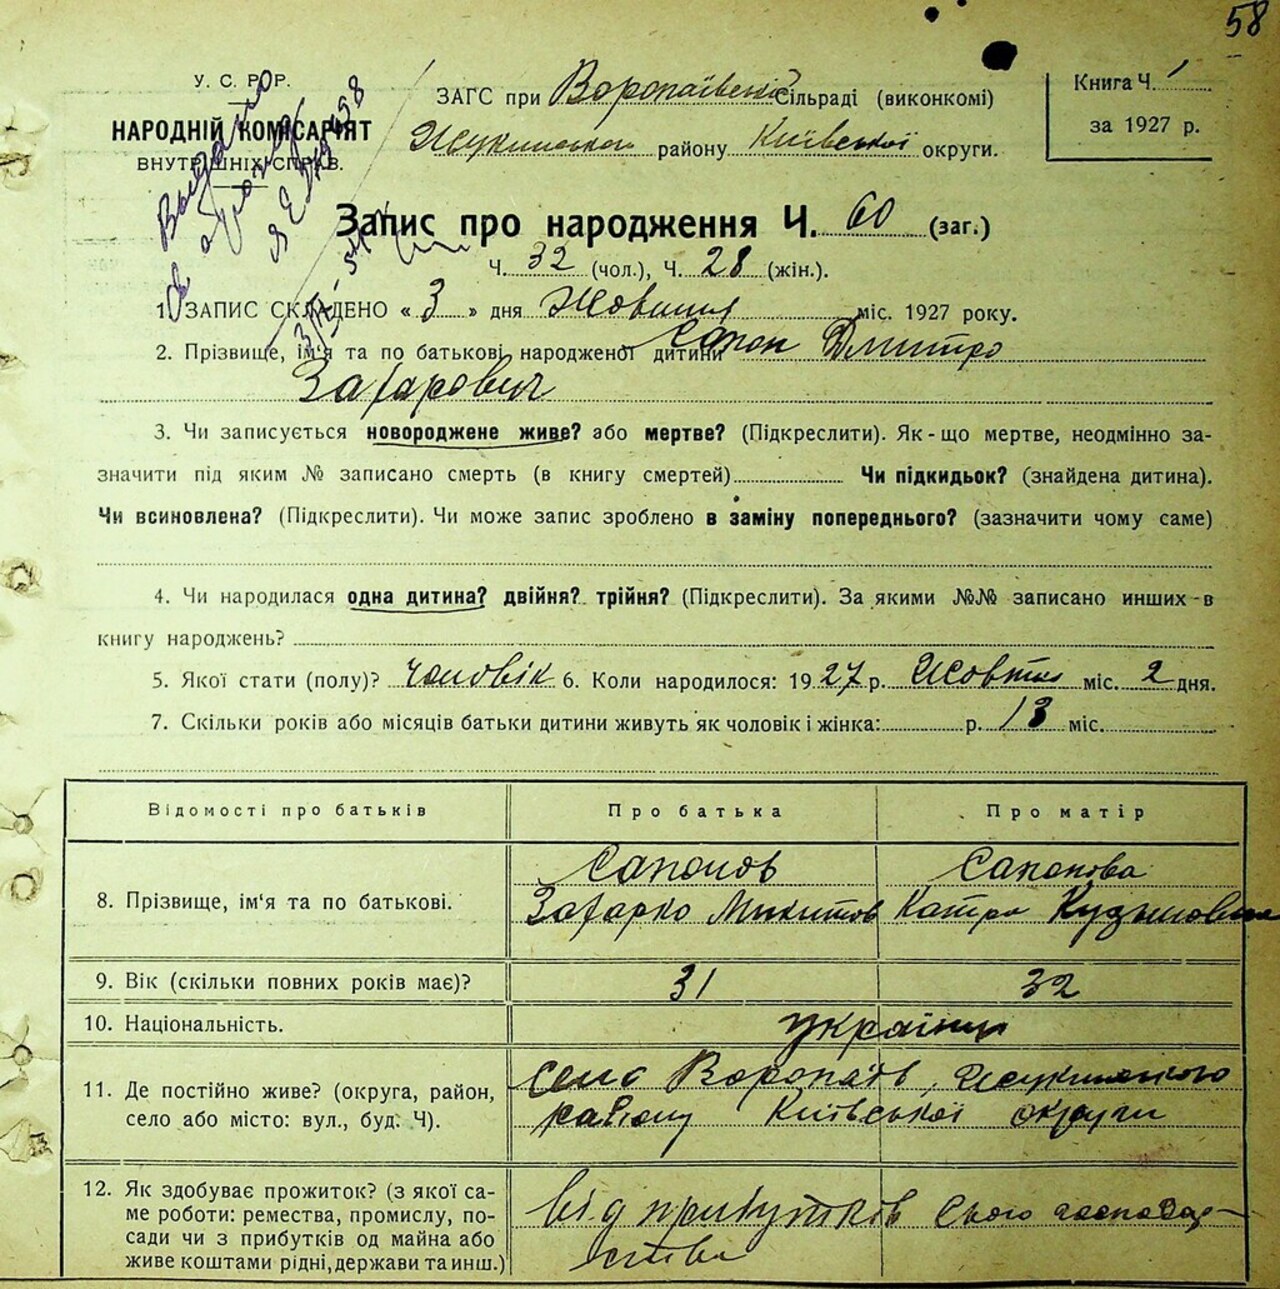 58
У. С. Р. Р.
НАРОДНІЙ КОМІСАРІЯТ
ВНУТРІШНІХ СПРАВ.
ЗАГС при Воропаївській Сільраді (виконкомі)
району Київської округи.
Книга Ч. 1
за 1927 р.
Запис про народження Ч. 60 (заг.)
Ч. 32 (чол.), Ч. 28 (жін.).
1. ЗАПИС СКЛАДЕНО « 3 » дня Жовтня міс. 1927 року.
2. Прізвище, ім'я та по батькові народженої дитини Сапон Дмитро
Захарович
3. Чи записується новороджене живе? або мертве? (Підкреслити). Як-що мертве, неодмінно за-
значити під яким № записано смерть (в книгу смертей) Чи підкидьок? (знайдена дитина).
Чи всиновлена? (Підкреслити). Чи може запис зроблено в заміну попереднього? (зазначити чому саме)
4. Чи народилася одна дитина? двійня? трійня? (Підкреслити). За якими №№ записано инших в
книгу народжень?
5. Якої стати (полу)? Чоловік 6. Коли народилося: 1927 р. Жовтня міс. 2 дня.
7. Скільки років або місяців батьки дитини живуть як чоловік і жінка: р. 13 міс.
Відомості про батьків Про батька Про матір
8. Прізвище, ім'я та по батькові. Сапонов Сапонова
Захарко Микитов Катря Кузьмовна
9. Вік (скільки повних років має)? 31 32
10. Національність. українці
11. Де постійно живе? (округа, район, село Воропаїв,
село або місто: вул., буд. Ч). району Київської округи
12. Як здобуває прожиток? (з якої са- від прибутків свого господар-
ме роботи: ремества, промислу, по- ства
сади чи з прибутків од майна або
живе коштами рідні, держави та инш.)